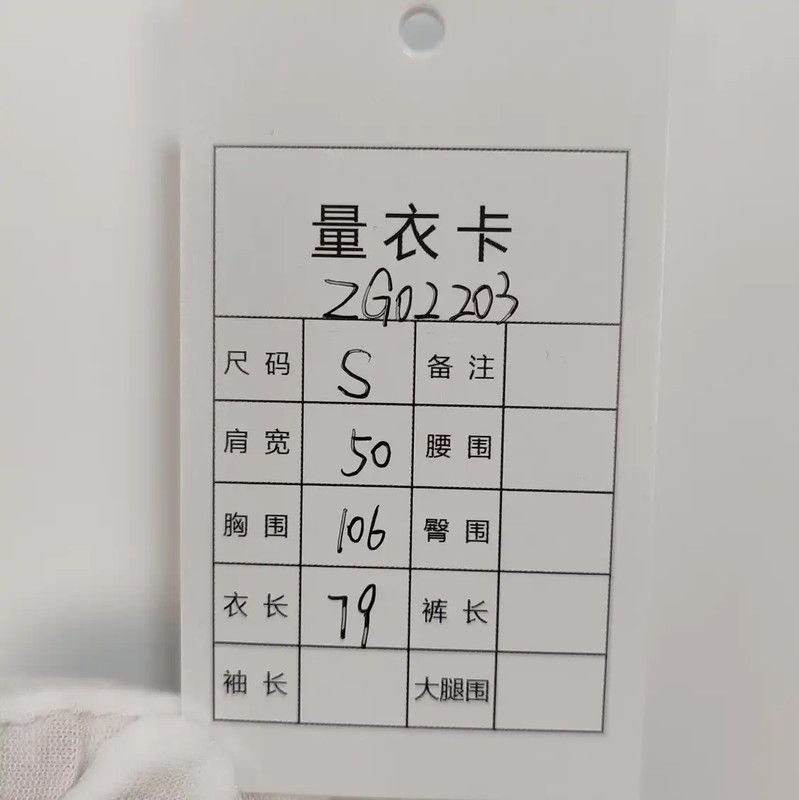 量衣卡
ZG02203
尺码 S 备注
肩宽 50 腰围
胸围 106 臀围
衣长 79 裤长
袖长 大腿围